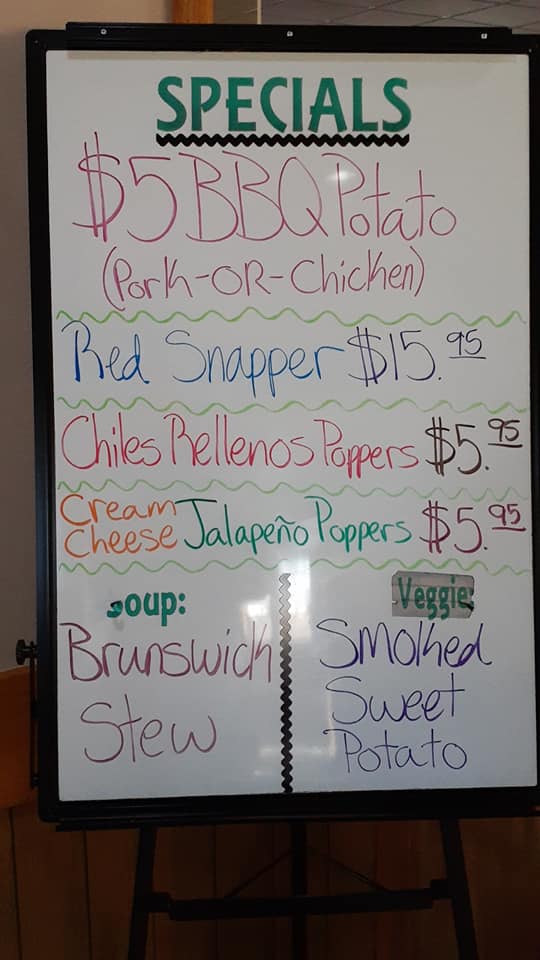 SPECIALS
$5 BBQ Potato
(Pork-OR-Chicken)
Red Snapper $15.95
Chiles Rellenos Poppers $5.95
Cream Cheese Jalapeño Poppers $5.95
Soup:
Brunswick
Stew
Veggie:
Smoked
Sweet
Potato